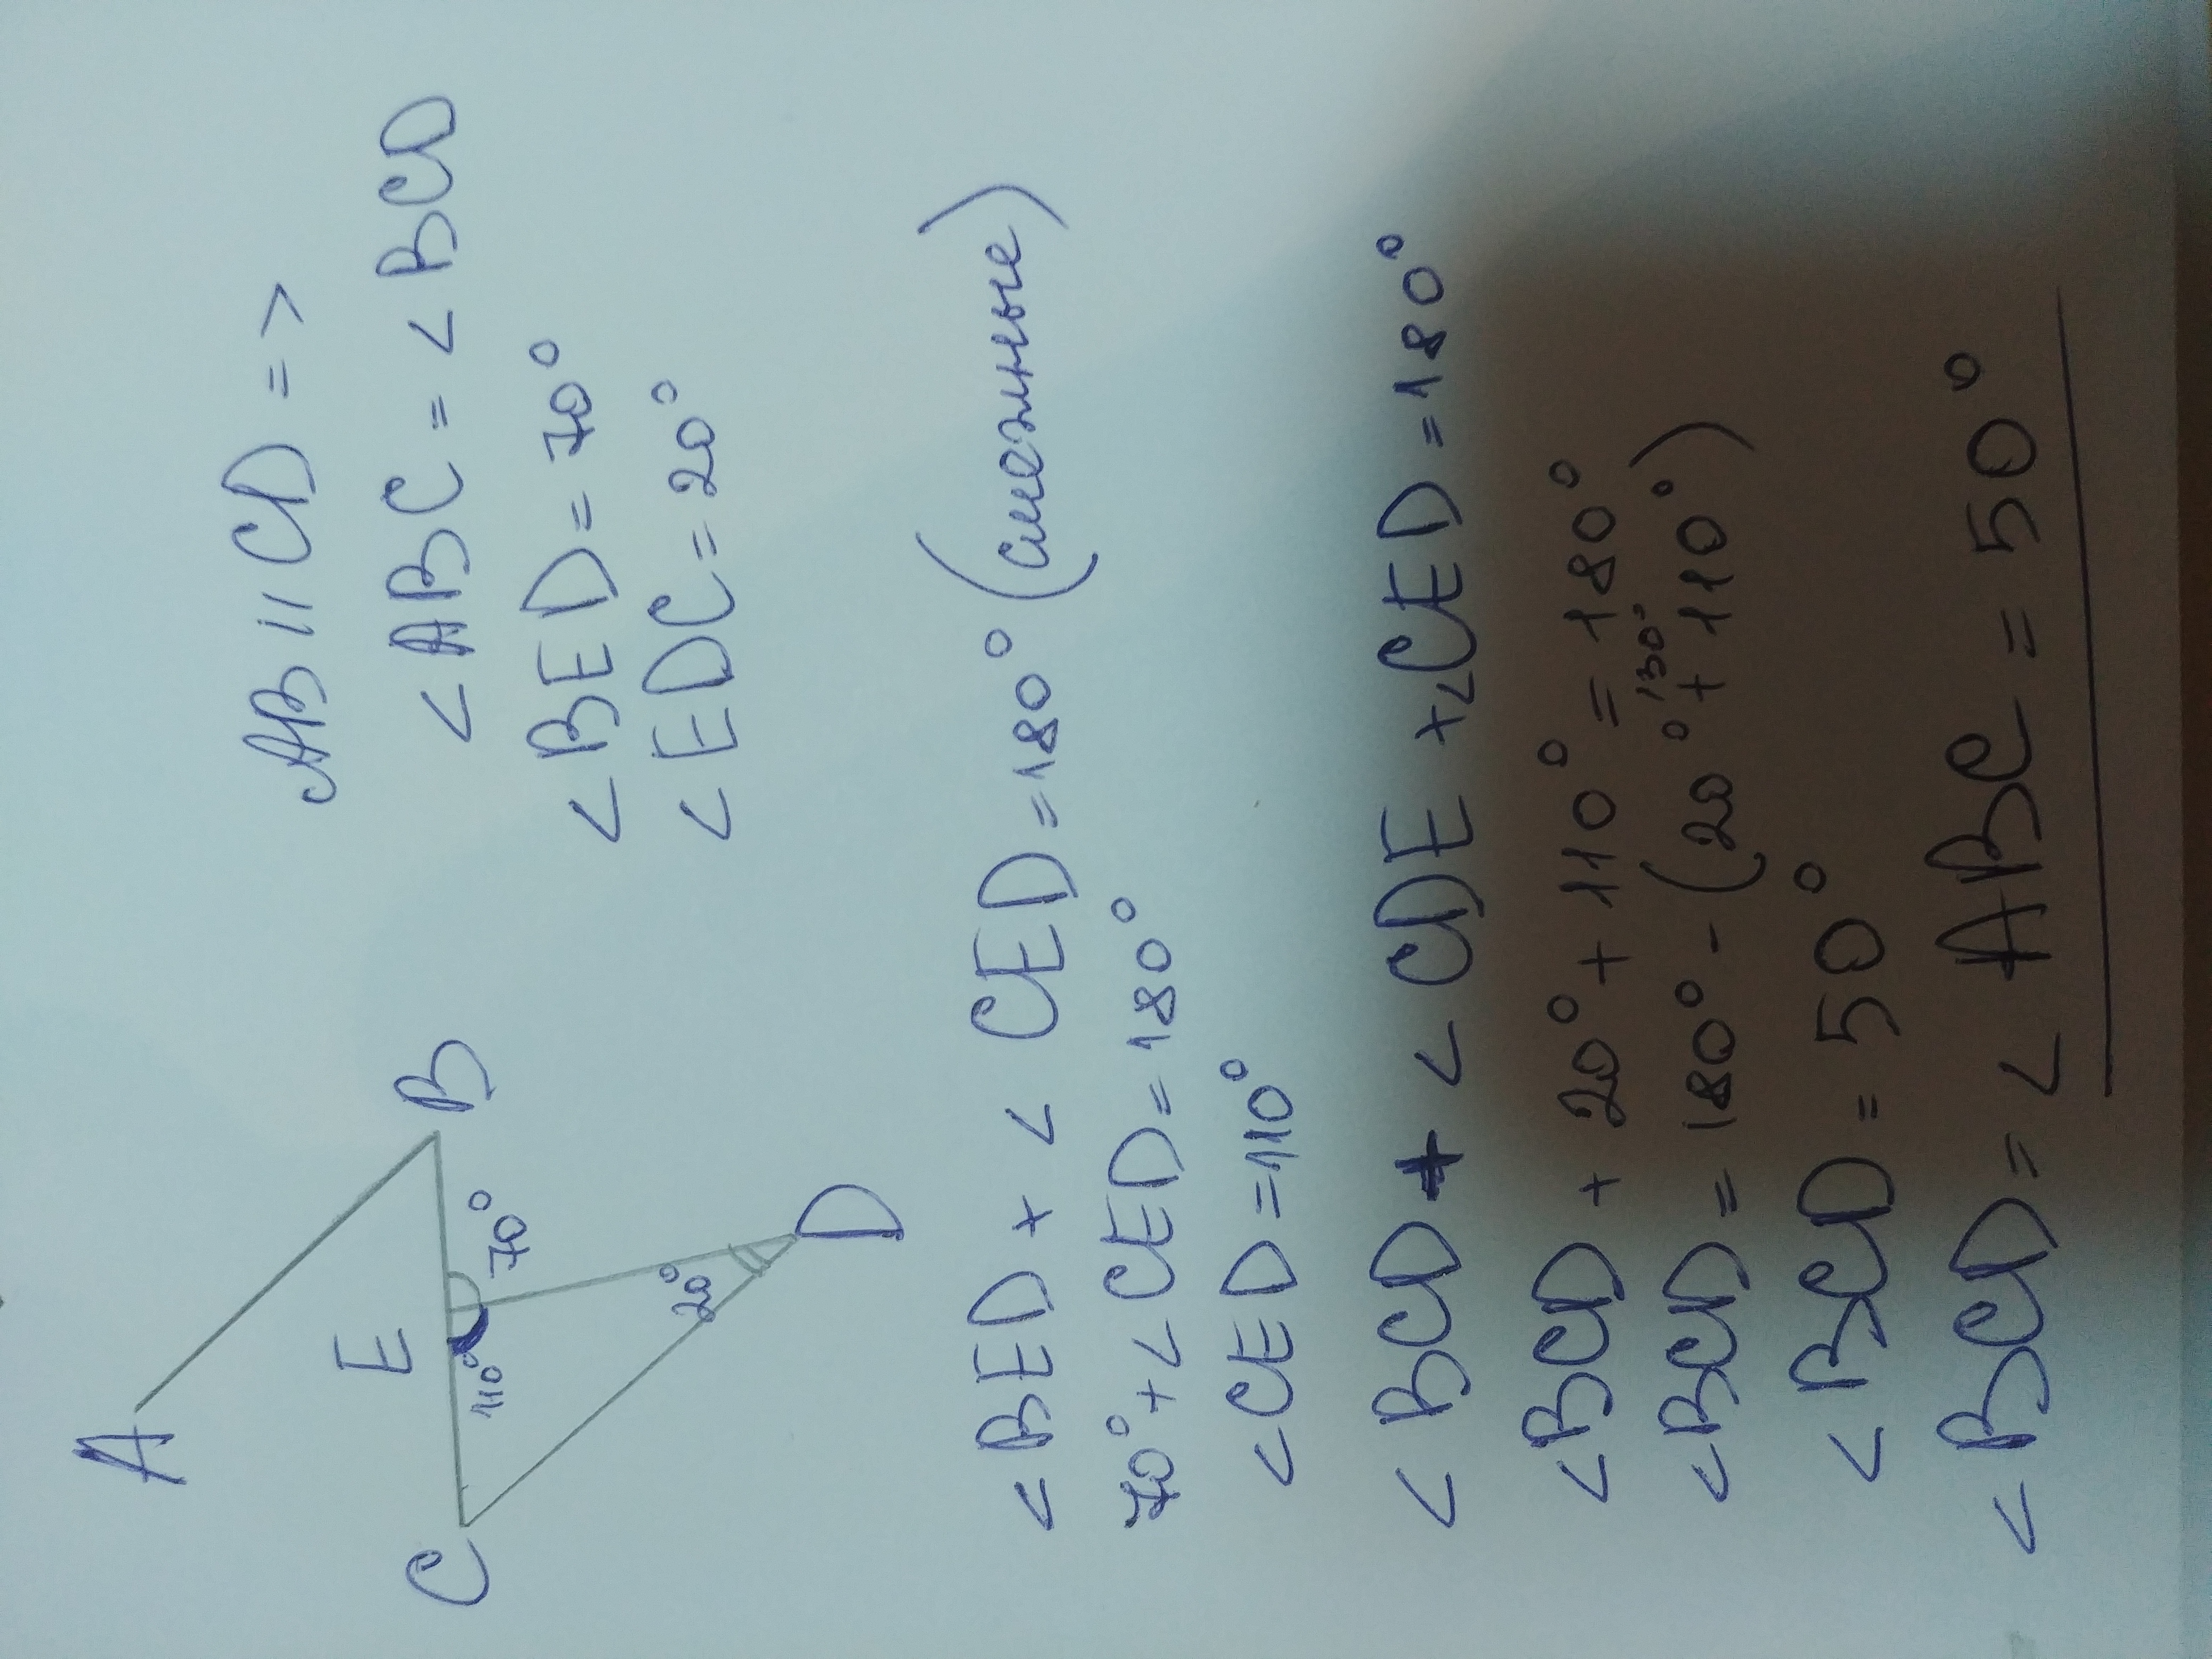 A
E
B
C
110°
70°
20°
D
AB || CD =>
< ABC = < BCD
< BED = 70°
< EDC = 20°
< BED + < CED = 180° (смежные)
70° + < CED = 180°
< CED = 110°
< BCD + < CDE + < CED = 180°
< BCD + 20° + 110° = 180°
130°
< BCD = 180° - (20° + 110°)
< BCD = 50°
< BCD = < ABC = 50°